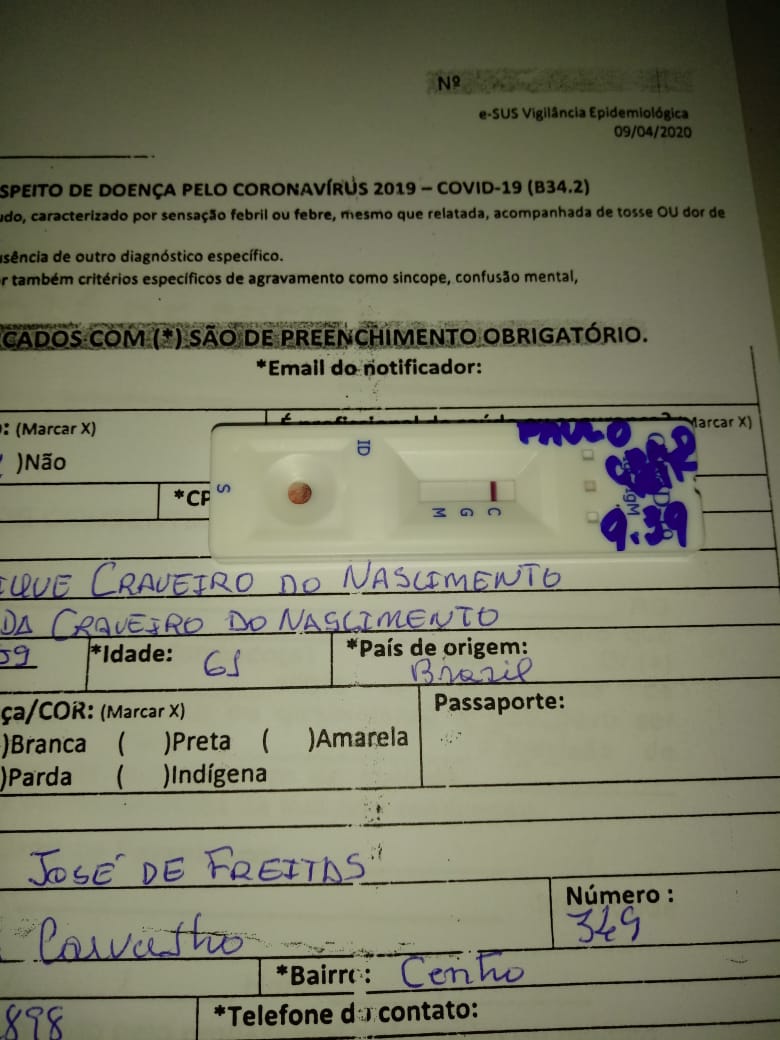 Nº
e-SUS Vigilância Epidemiológica
09/04/2020
SPEITO DE DOENÇA PELO CORONAVÍRUS 2019 – COVID-19 (B34.2)
udo, caracterizado por sensação febril ou febre, mesmo que relatada, acompanhada de tosse OU dor de
usência de outro diagnóstico específico.
r também critérios específicos de agravamento como sincope, confusão mental,
CADOS COM (*) SÃO DE PREENCHIMENTO OBRIGATÓRIO.
*Email do notificador:
: (Marcar X)
É profissional de saúde Marcar X)
)Não
*CP
PAULO
ID
S
C
G
M
IgM
9:39
IQUE CRAVEIRO DO NASCIMENTO
DA CRAVEIRO DO NASCIMENTO
59 *Idade: 61 *País de origem:
Brazil
ça/COR: (Marcar X) Passaporte:
)Branca ( )Preta ( )Amarela
)Parda ( )Indígena
JOSÉ DE FREITAS
Número :
349
Carvalho
*Bairro: Centro
898 *Telefone de contato: